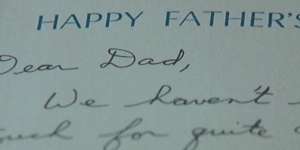 HAPPY FATHER'S
Dear Dad,
We haven't
much for quite a